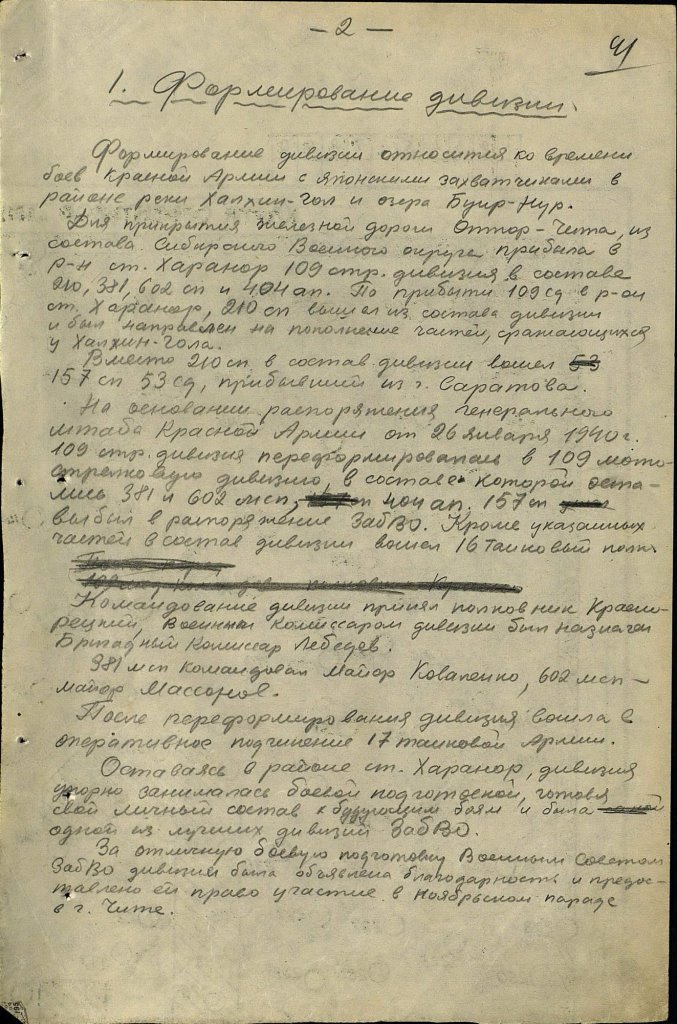 – 2 –
91
1. Формирование дивизии.
Формирование дивизии относится ко времени
боев Красной Армии с японскими захватчиками в
районе реки Халхин-Гол и озера Буир-Нур.
Для прикрытия железной дороги Отпор-Чита, из
состава Сибирского Военного округа прибыла в
р-н ст. Харанор 109 стр. дивизия в составе
210, 381, 602 сп и 404 ап. По прибытии 109 сд в р-он
ст. Харанор, 210 сп вышел из состава дивизии
и был направлен на пополнение частей, сражающихся
у Халхин-Гола.
Вместо 210 сп в состав дивизии вошел 53
157 сп 53 сд, прибывший из г. Саратова.
На основании распоряжения генерального
штаба Красной Армии от 26 января 1940 г.
109 стр. дивизия переформировалась в 109 мото-
стрелковую дивизию, в составе которой оста-
лись 381 и 602 мсп, сп 404 ап. 157 сп
выбыл в распоряжение ЗабВО. Кроме указанных
частей в состав дивизии вошел 16 танковый полк.
Командование дивизии принял полковник Красно-
рецкий, Военным Комиссаром дивизии был назначен
Бригадный Комиссар Лебедев.
381 мсп командовал Майор Коваленко, 602 мсп –
майор Массонов.
После переформирования дивизия вошла в
оперативное подчинение 17 танковой Армии.
Оставаясь в районе ст. Харанор, дивизия
упорно занималась боевой подготовкой, готовя
свой личный состав к будующим боям и была
одной из лучших дивизий ЗабВО.
За отличную боевую подготовку Военным Советом
ЗабВО дивизии была объявлена благодарность и предос-
тавлено ей право участие в Ноябрьском параде
в г. Чите.